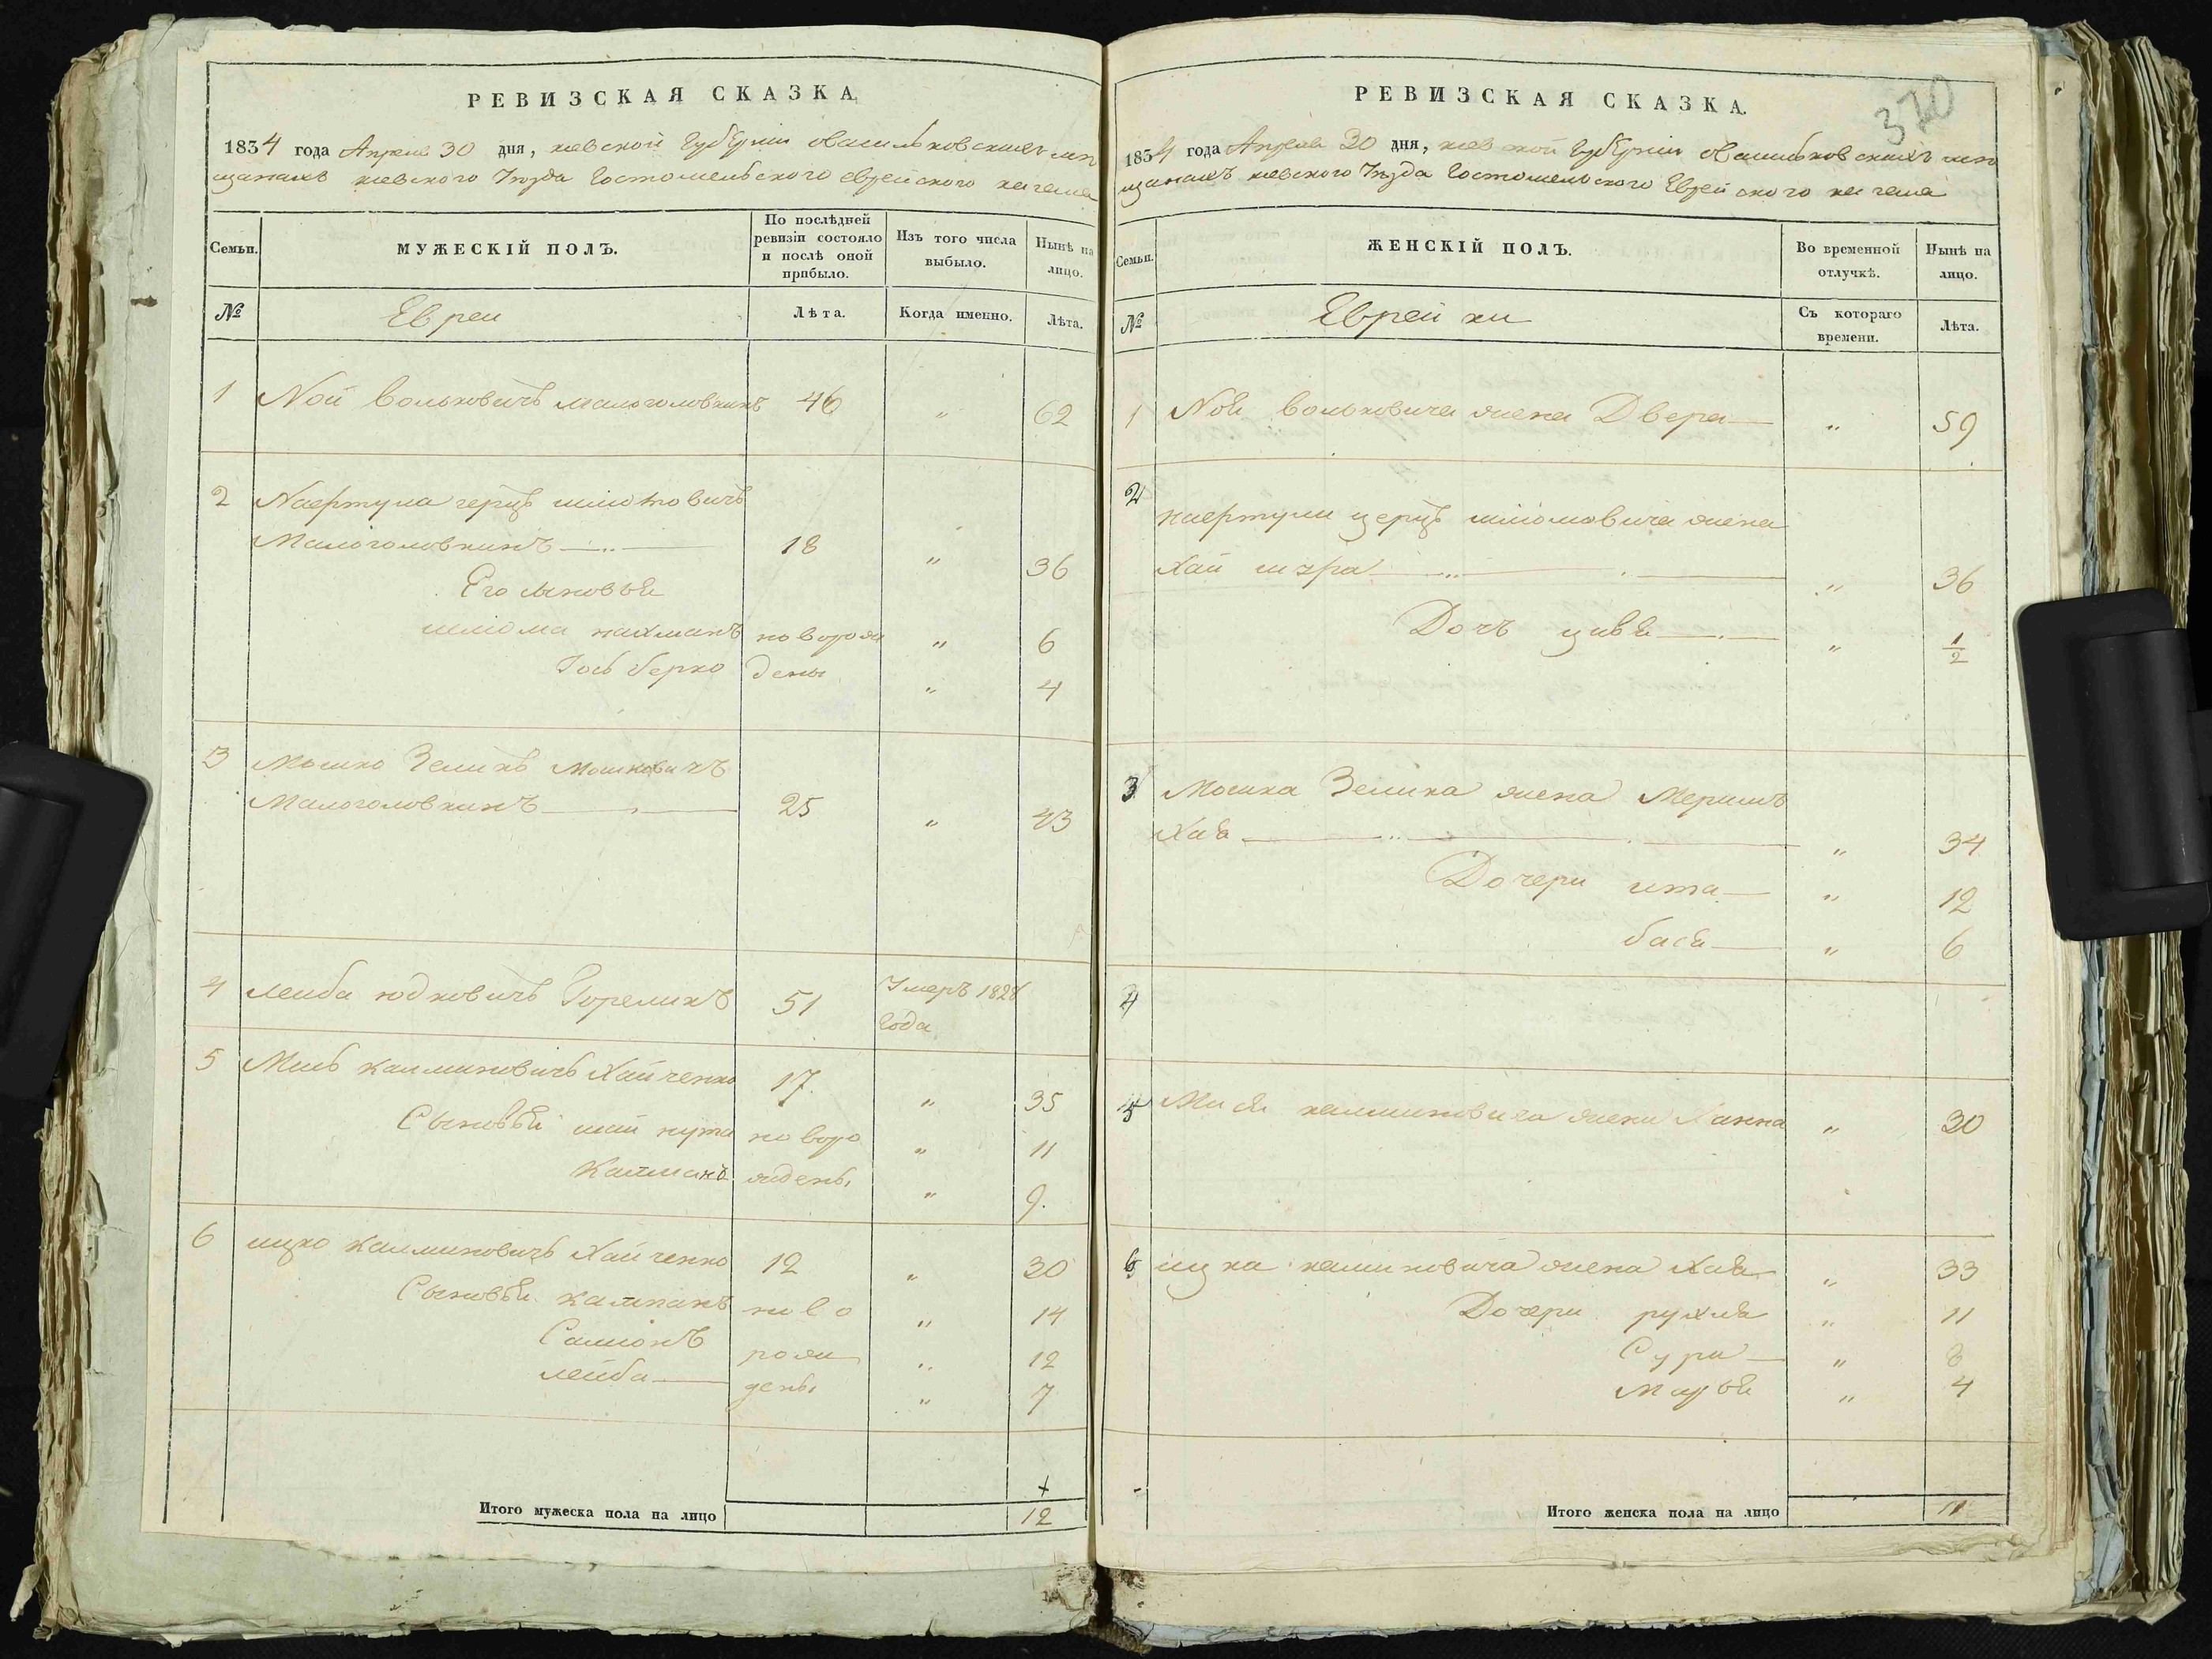 РЕВИЗСКАЯ СКАЗКА
1834 года Апреля 30 дня, киевской Губернии оВасильковских мѣ
щанахъ киевского Уезда Гостомельского еврейского кагала
Семьи. МУЖЕСКІЙ ПОЛЪ. По послѣдней ревизіи состояло и послѣ оной прибыло. Изъ того числа выбыло. Нынѣ на лицо.
№ Евреи Лѣта. Когда именно. Лѣта.
1 Ной Вольковичъ Малоголовкинъ 46 „ 62
2 герцъ
Малоголовкинъ 18 „ 36
Его сыновья
шлиома нахманъ новорож „ 6
Iось берко дены „ 4
3 Мошко Зеликъ Мошковичъ
Малоголовкинъ 25 „ 43
4 лейба юдковичъ Гореликъ 51 Умеръ 1828
года
5 Калмановичъ Хайченко 17 „ 35
Сыновья новоро „ 11
Калманъ ждены „ 9.
6 ицко Калмановичъ Хайченко 12 „ 30
Сыновья Калманъ ново „ 14
Самсонъ рож „ 12
лейба дены „ 7
Итого мужеска пола на лицо 12
РЕВИЗСКАЯ СКАЗКА.
370
1834 года Апреля 30 дня, киевской Губернии оВасильковскихъ мѣ
щанахъ киевского Уезда Гостомельского Еврейского кагала
Семьи. ЖЕНСКІЙ ПОЛЪ. Во временной отлучкѣ. Нынѣ на лицо.
№ Еврейки Съ котораго времени. Лѣта.
1 Ноя вольковича жена Двера „ 59
2
герцъ шлиомовича жена
Хай „ 36
Дочъ цивя „ 1/2
3 Мошка Зелика жена
Хая „ 34
Дочери ита „ 12
бася „ 6
4
5 калмановича жена Ханна „ 30
6 ицка калмановича жена Хая „ 33
Дочери рухля „ 11
Сура „ 8
„ 4
Итого женска пола на лицо 11